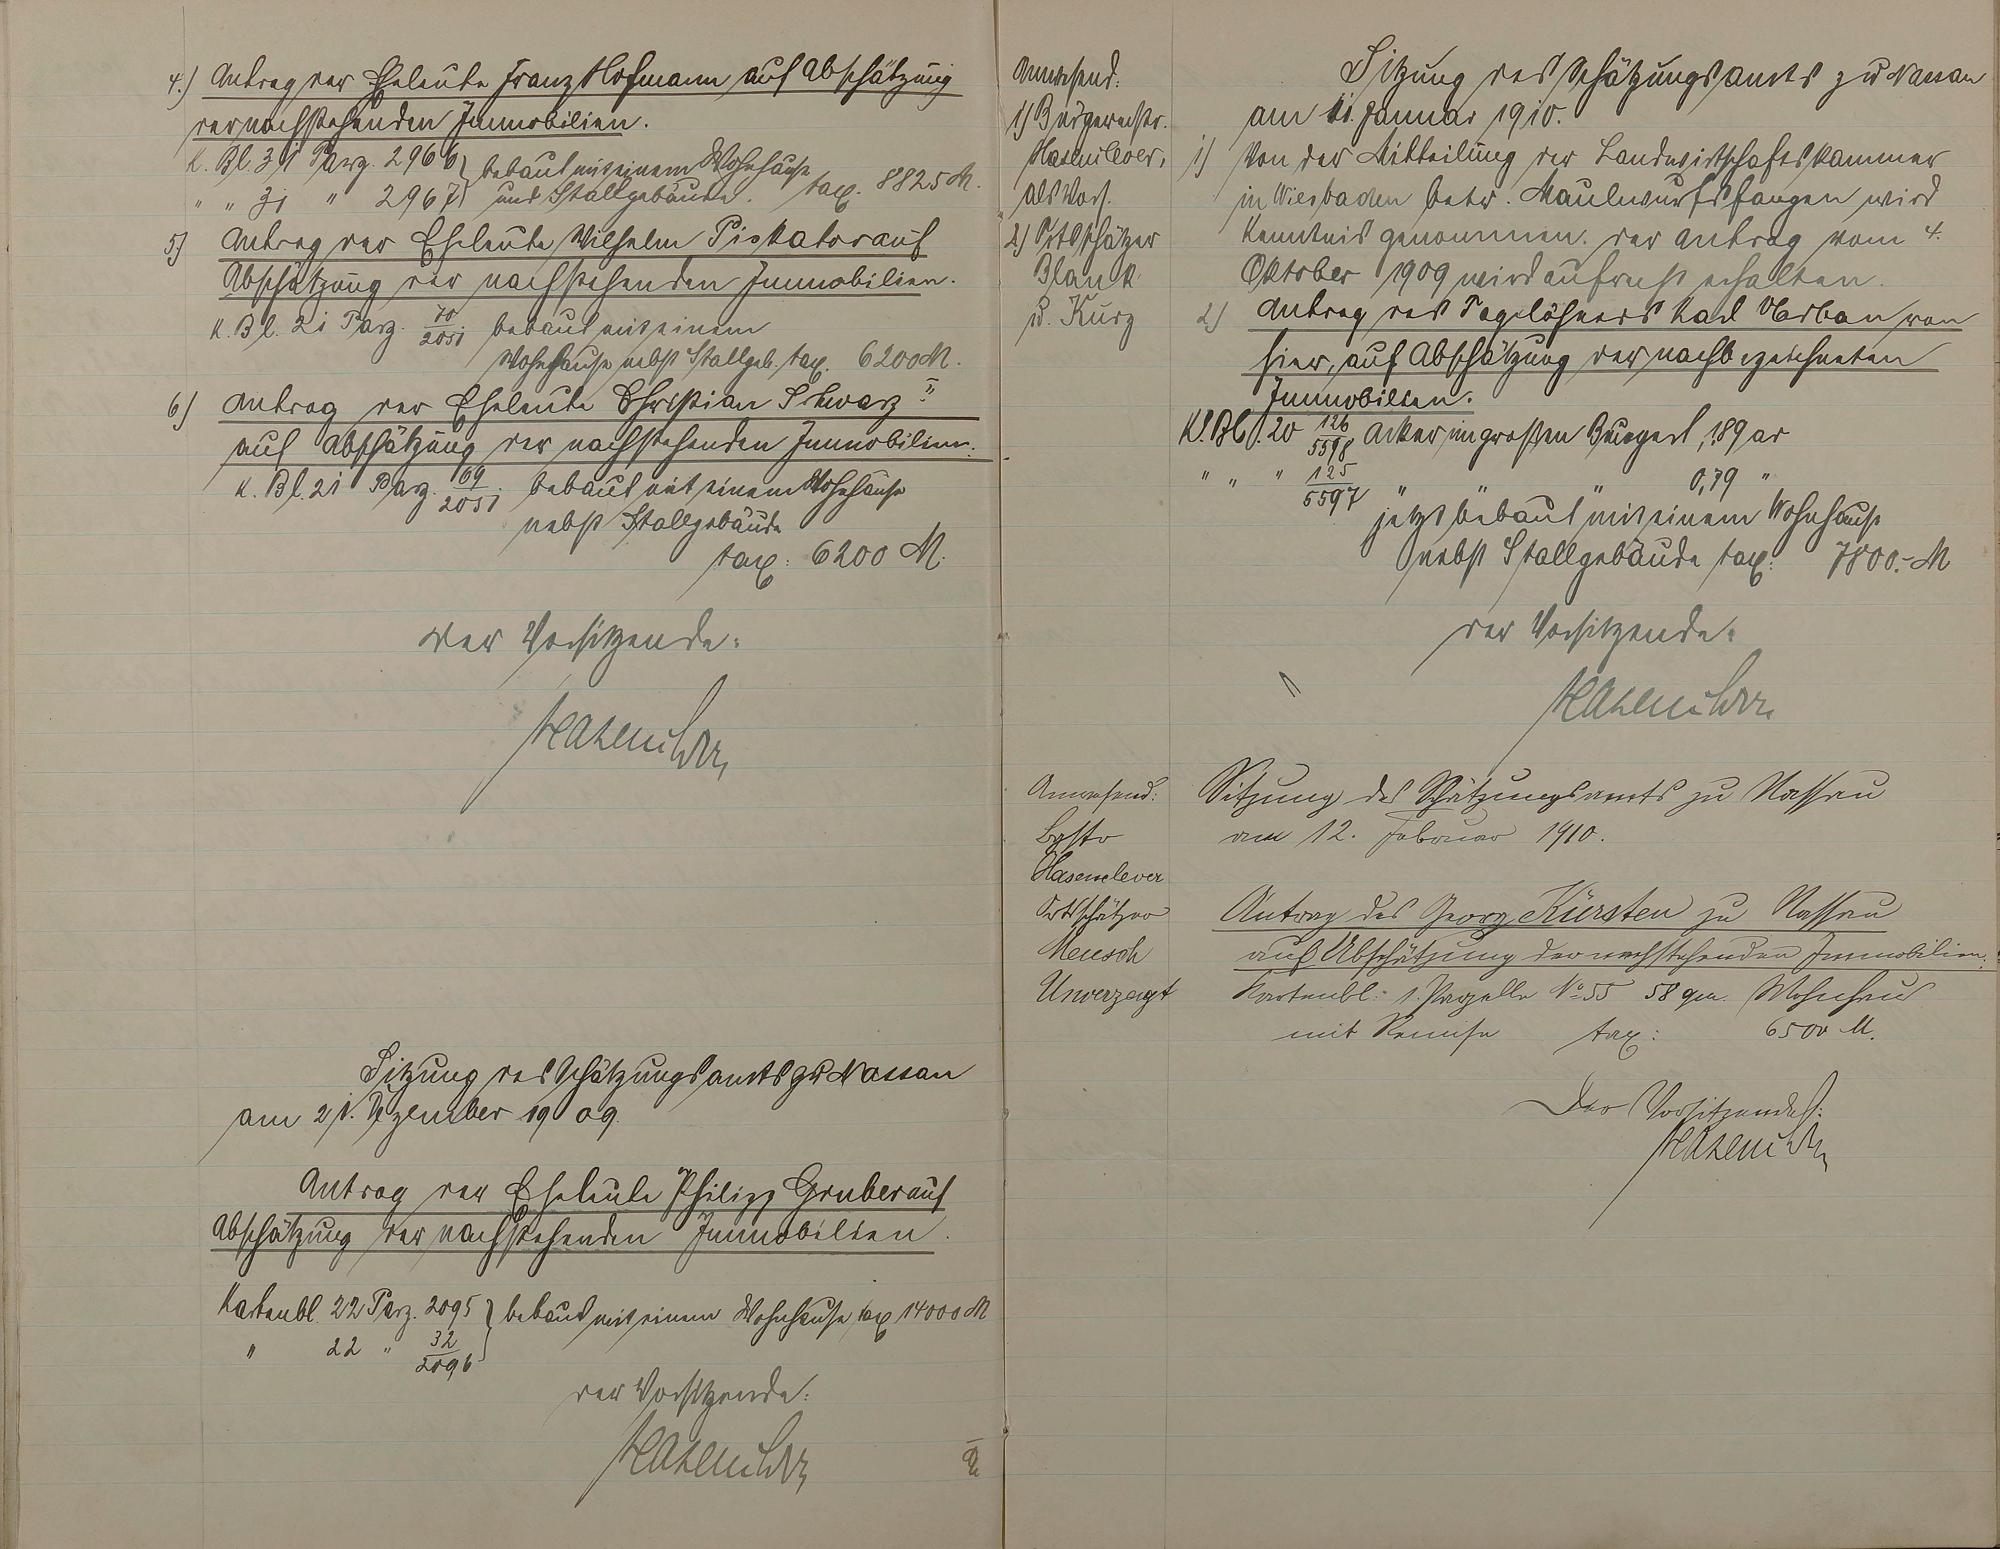 4.) Antrag der Eheleute Franz Hofmann auf Abschätzung
der nachstehenden Immobilien.
K. Bl. 31 Parz. 2966 } bebaut mit einem Wohnhause
" " 31 " 2967 } und Stallgebäude. tax. 8825 M.
5) Antrag der Eheleute Wilhelm Piskator auf
Abschätzung der nachstehenden Immobilien.
K. Bl. 21 Parz. 70/2051 bebaut mit einem
Wohnhause nebst Stallgeb. tax. 6200 M.
6) Antrag der Eheleute Christian Schwarz II
auf Abschätzung der nachstehenden Immobilien.
K. Bl. 21 Parz. 69/2051 bebaut mit einem Wohnhause
nebst Stallgebäude
tax: 6200 M.
Der Vorsitzende:
Hasenclever
Sitzung des Schätzungsamts zu Nassau
am 21. Dezember 1909.
Antrag der Eheleute Philipp Gruber auf
Abschätzung der nachstehenden Immobilien.
Kartenbl. 22 Parz. 2095 } bebaut mit einem Wohnhause tax 14000 M
" 22 " 32/2096 }
der Vorsitzende:
Hasenclever
Anwesend:
1) Bürgermstr.
Hasenclever,
als Vors.
2) Ortsschätzer
Blank
u. Kurz
Sitzung des Schätzungsamts zu Nassau
am 11. Januar 1910.
1) Von der Mitteilung der Landwirtschaftskammer
in Wiesbaden betr. Maulwurfsfangen wird
Kenntnis genommen. Der Antrag vom 4.
Oktober 1909 wird aufrecht erhalten.
2) Antrag des Tagelöhners Karl Urban von
hier, auf Abschätzung der nachbezeichneten
Immobilien.
K. Bl. 20 126/5598 Acker im großen 1,89 ar
" " " 125/5597 " " 0,79 "
jetzt bebaut mit einem Wohnhause
nebst Stallgebäude tax: 7800.- M
der Vorsitzende:
Hasenclever
Anwesend:
Hasenclever
Ortsschätzer
Meusch
Unverzagt
Sitzung des Schätzungsamts zu Nassau
am 12. Februar 1910.
Antrag des Georg Kürsten zu Nassau
auf Abschätzung der nachstehenden Immobilien.
Kartenbl: 1. Parzelle No 55 58 qm. Wohnhaus
mit Remise tax: 6500 M.
Der Vorsitzende:
Hasenclever